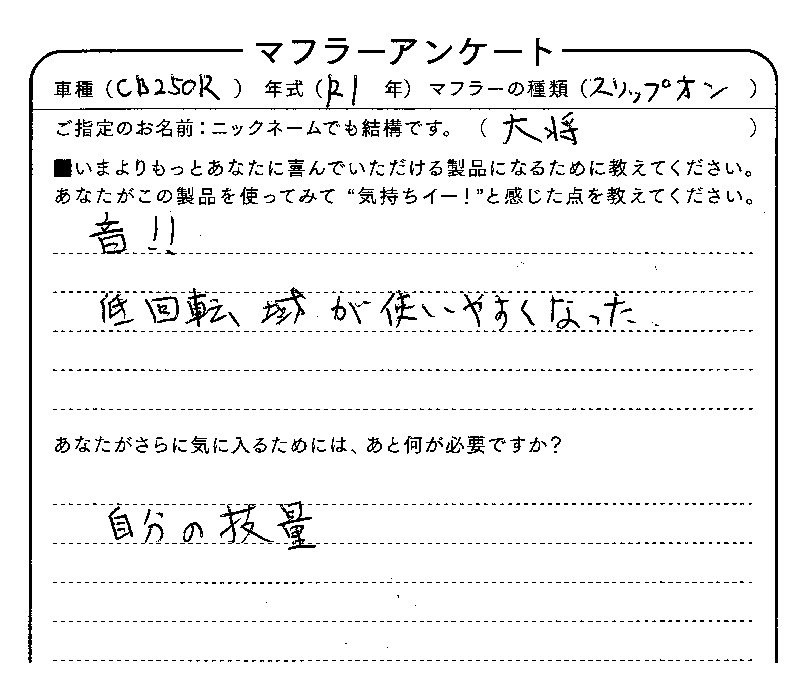 マフラーアンケート
車種（CB250R） 年式（R1 年） マフラーの種類（スリップオン）
ご指定のお名前：ニックネームでも結構です。（大将）
■いまよりもっとあなたに喜んでいただける製品になるために教えてください。
あなたがこの製品を使ってみて“気持ちイー！”と感じた点を教えてください。
音!!
低回転域が使いやすくなった。
あなたがさらに気に入るためには、あと何が必要ですか？
自分の技量